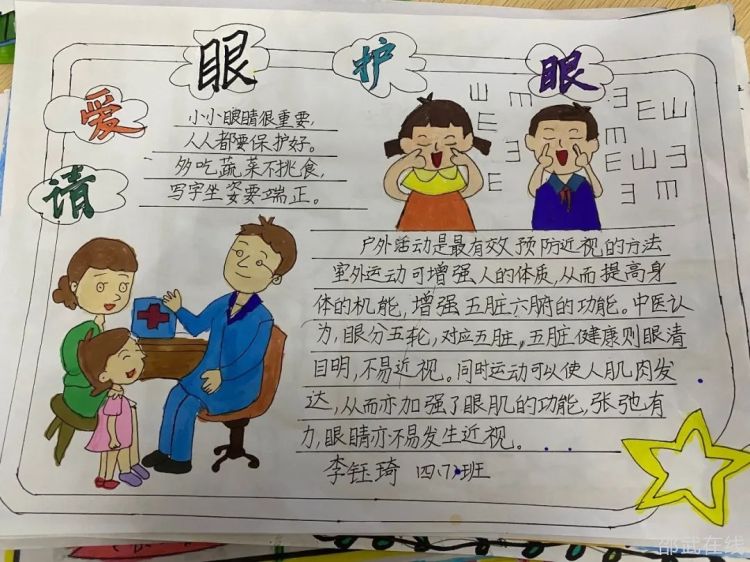 请爱眼护眼
小小眼睛很重要,
人人都要保护好。
多吃蔬菜不挑食,
写字坐姿要端正。
户外活动是最有效预防近视的方法
室外运动可增强人的体质,从而提高身
体的机能,增强五脏六腑的功能。中医认
为,眼分五轮,对应五脏,五脏健康则眼清
目明,不易近视。同时运动可以使人肌肉发
达,从而亦加强了眼肌的功能,张弛有
力,眼睛亦不易发生近视。
李钰琦 四(7)班
邵武在线